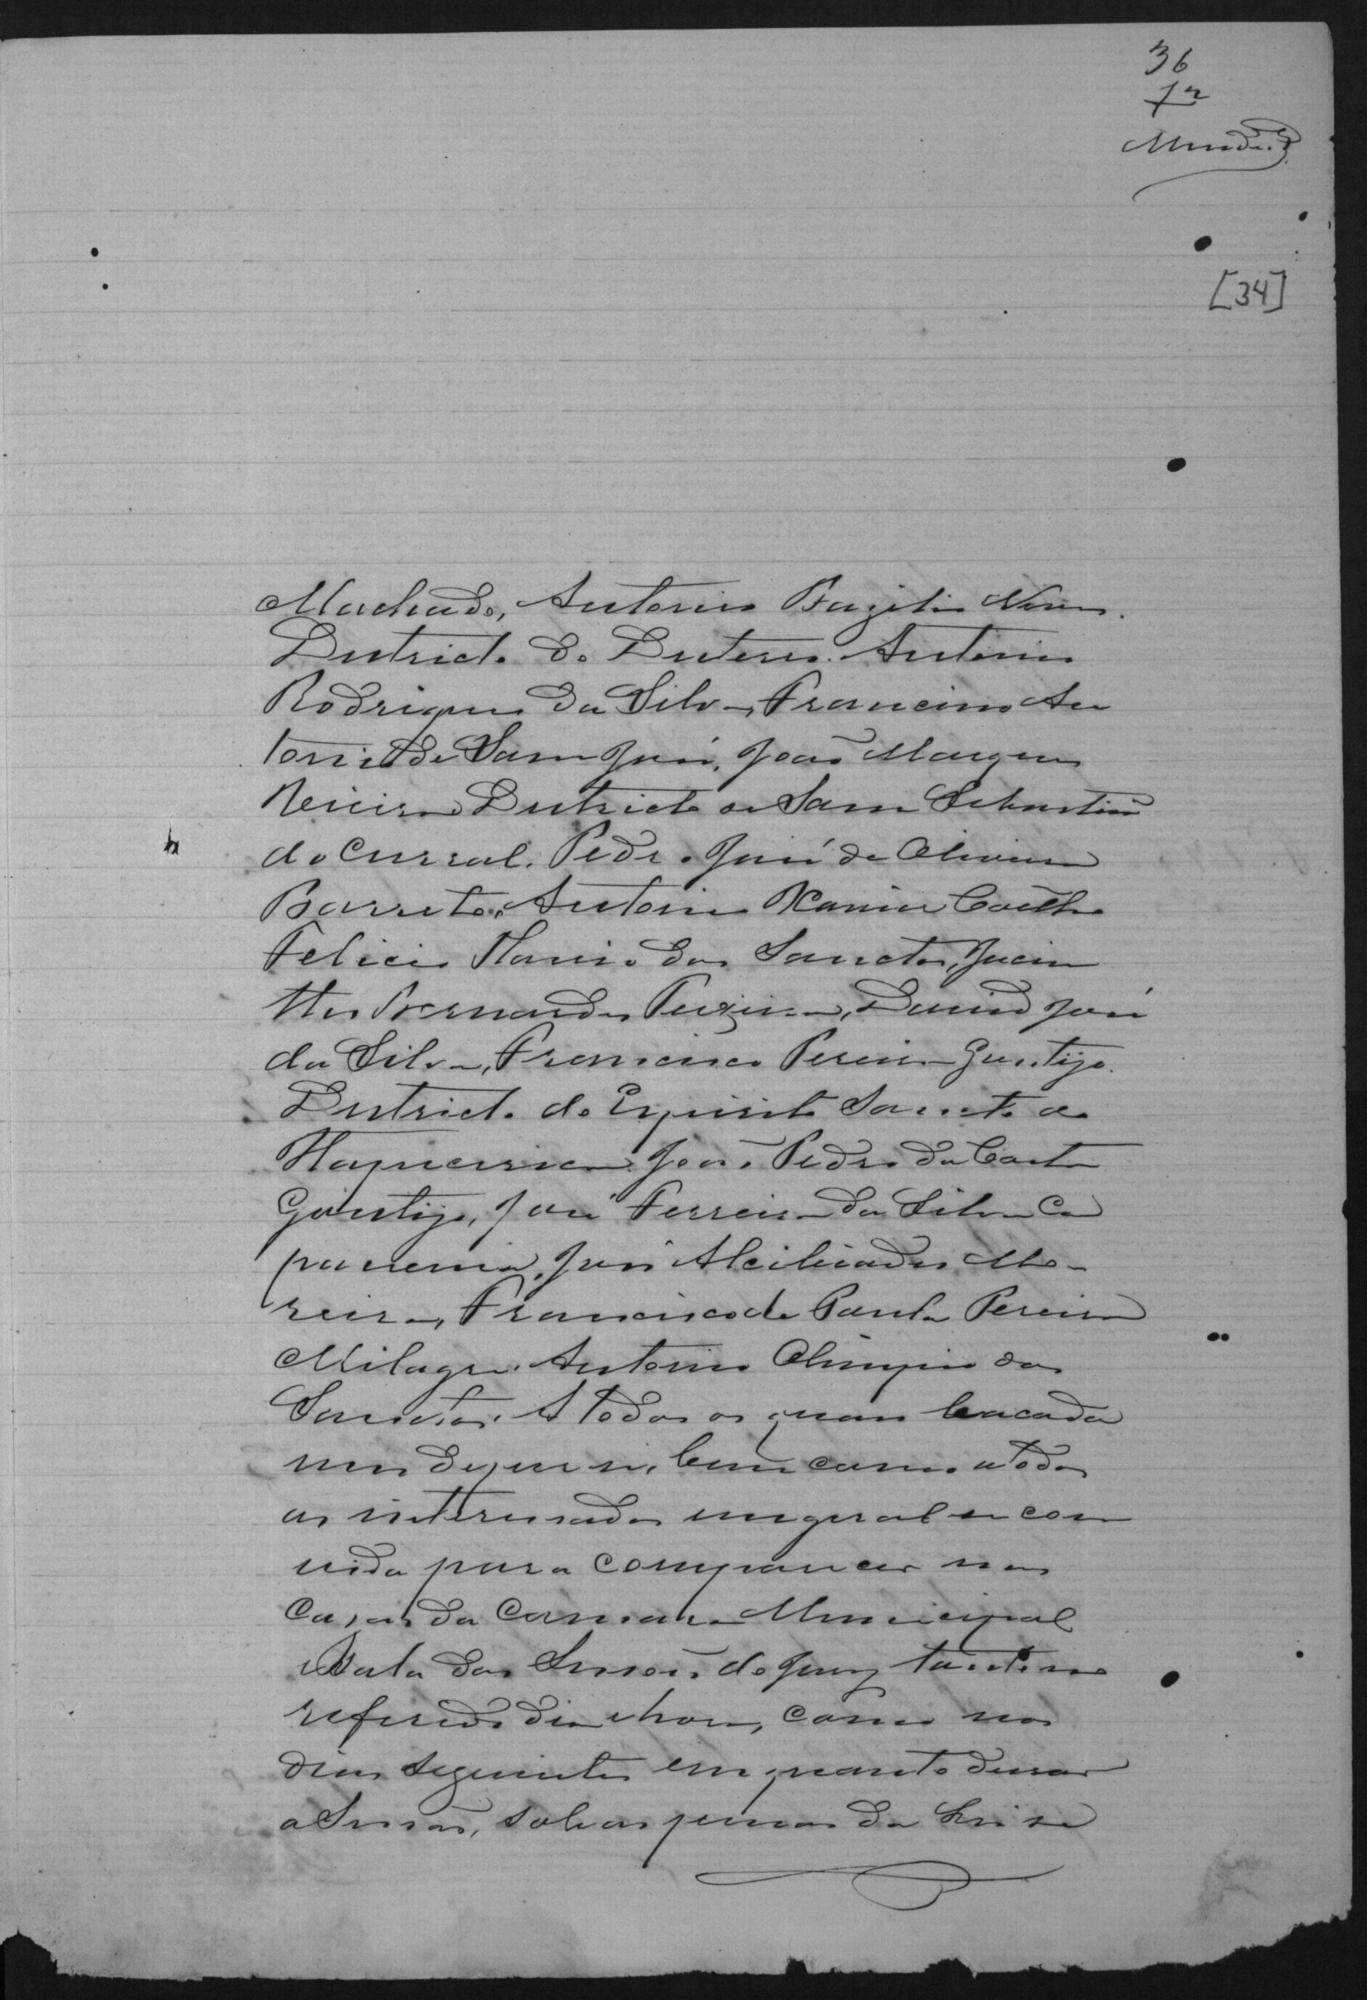 36
Mendes
[34]
Machado, Antonio Bazilio Nunes.
Districto do Desterro. Antonio
Rodrigues da Silva, Francisco An
tonio de Sam José, João Marques
Vieira Districto de Sam Sebastião
do Curral. Pedro José de Oliveira
Barreto, Antonio Xavier Coelho
Felicio Maria dos Sanctos, Jacin
tho Bernardes Teixeira, David José
da Silva, Francisco Pereira Gontijo.
Districto do Espirito Sancto de
Itapecerica. João Pedro da Costa
Gontijo, José Ferreira da Silva Ca
panema, José Alcibiades Mo-
reira, Francisco de Paula Pereira
Milagre. Antonio Olimpio dos
Sanctos. A todos os quaes e a cada
um de per si, bem como a todos
os interessados em geral se con
vida para comparecer nas
Casas da Camara Municipal
e Sala das Sessões do Jury tanto no
referido dia e hora, como nos
dias seguintes em quanto durar
a Sessão, sob as penas da Lei se